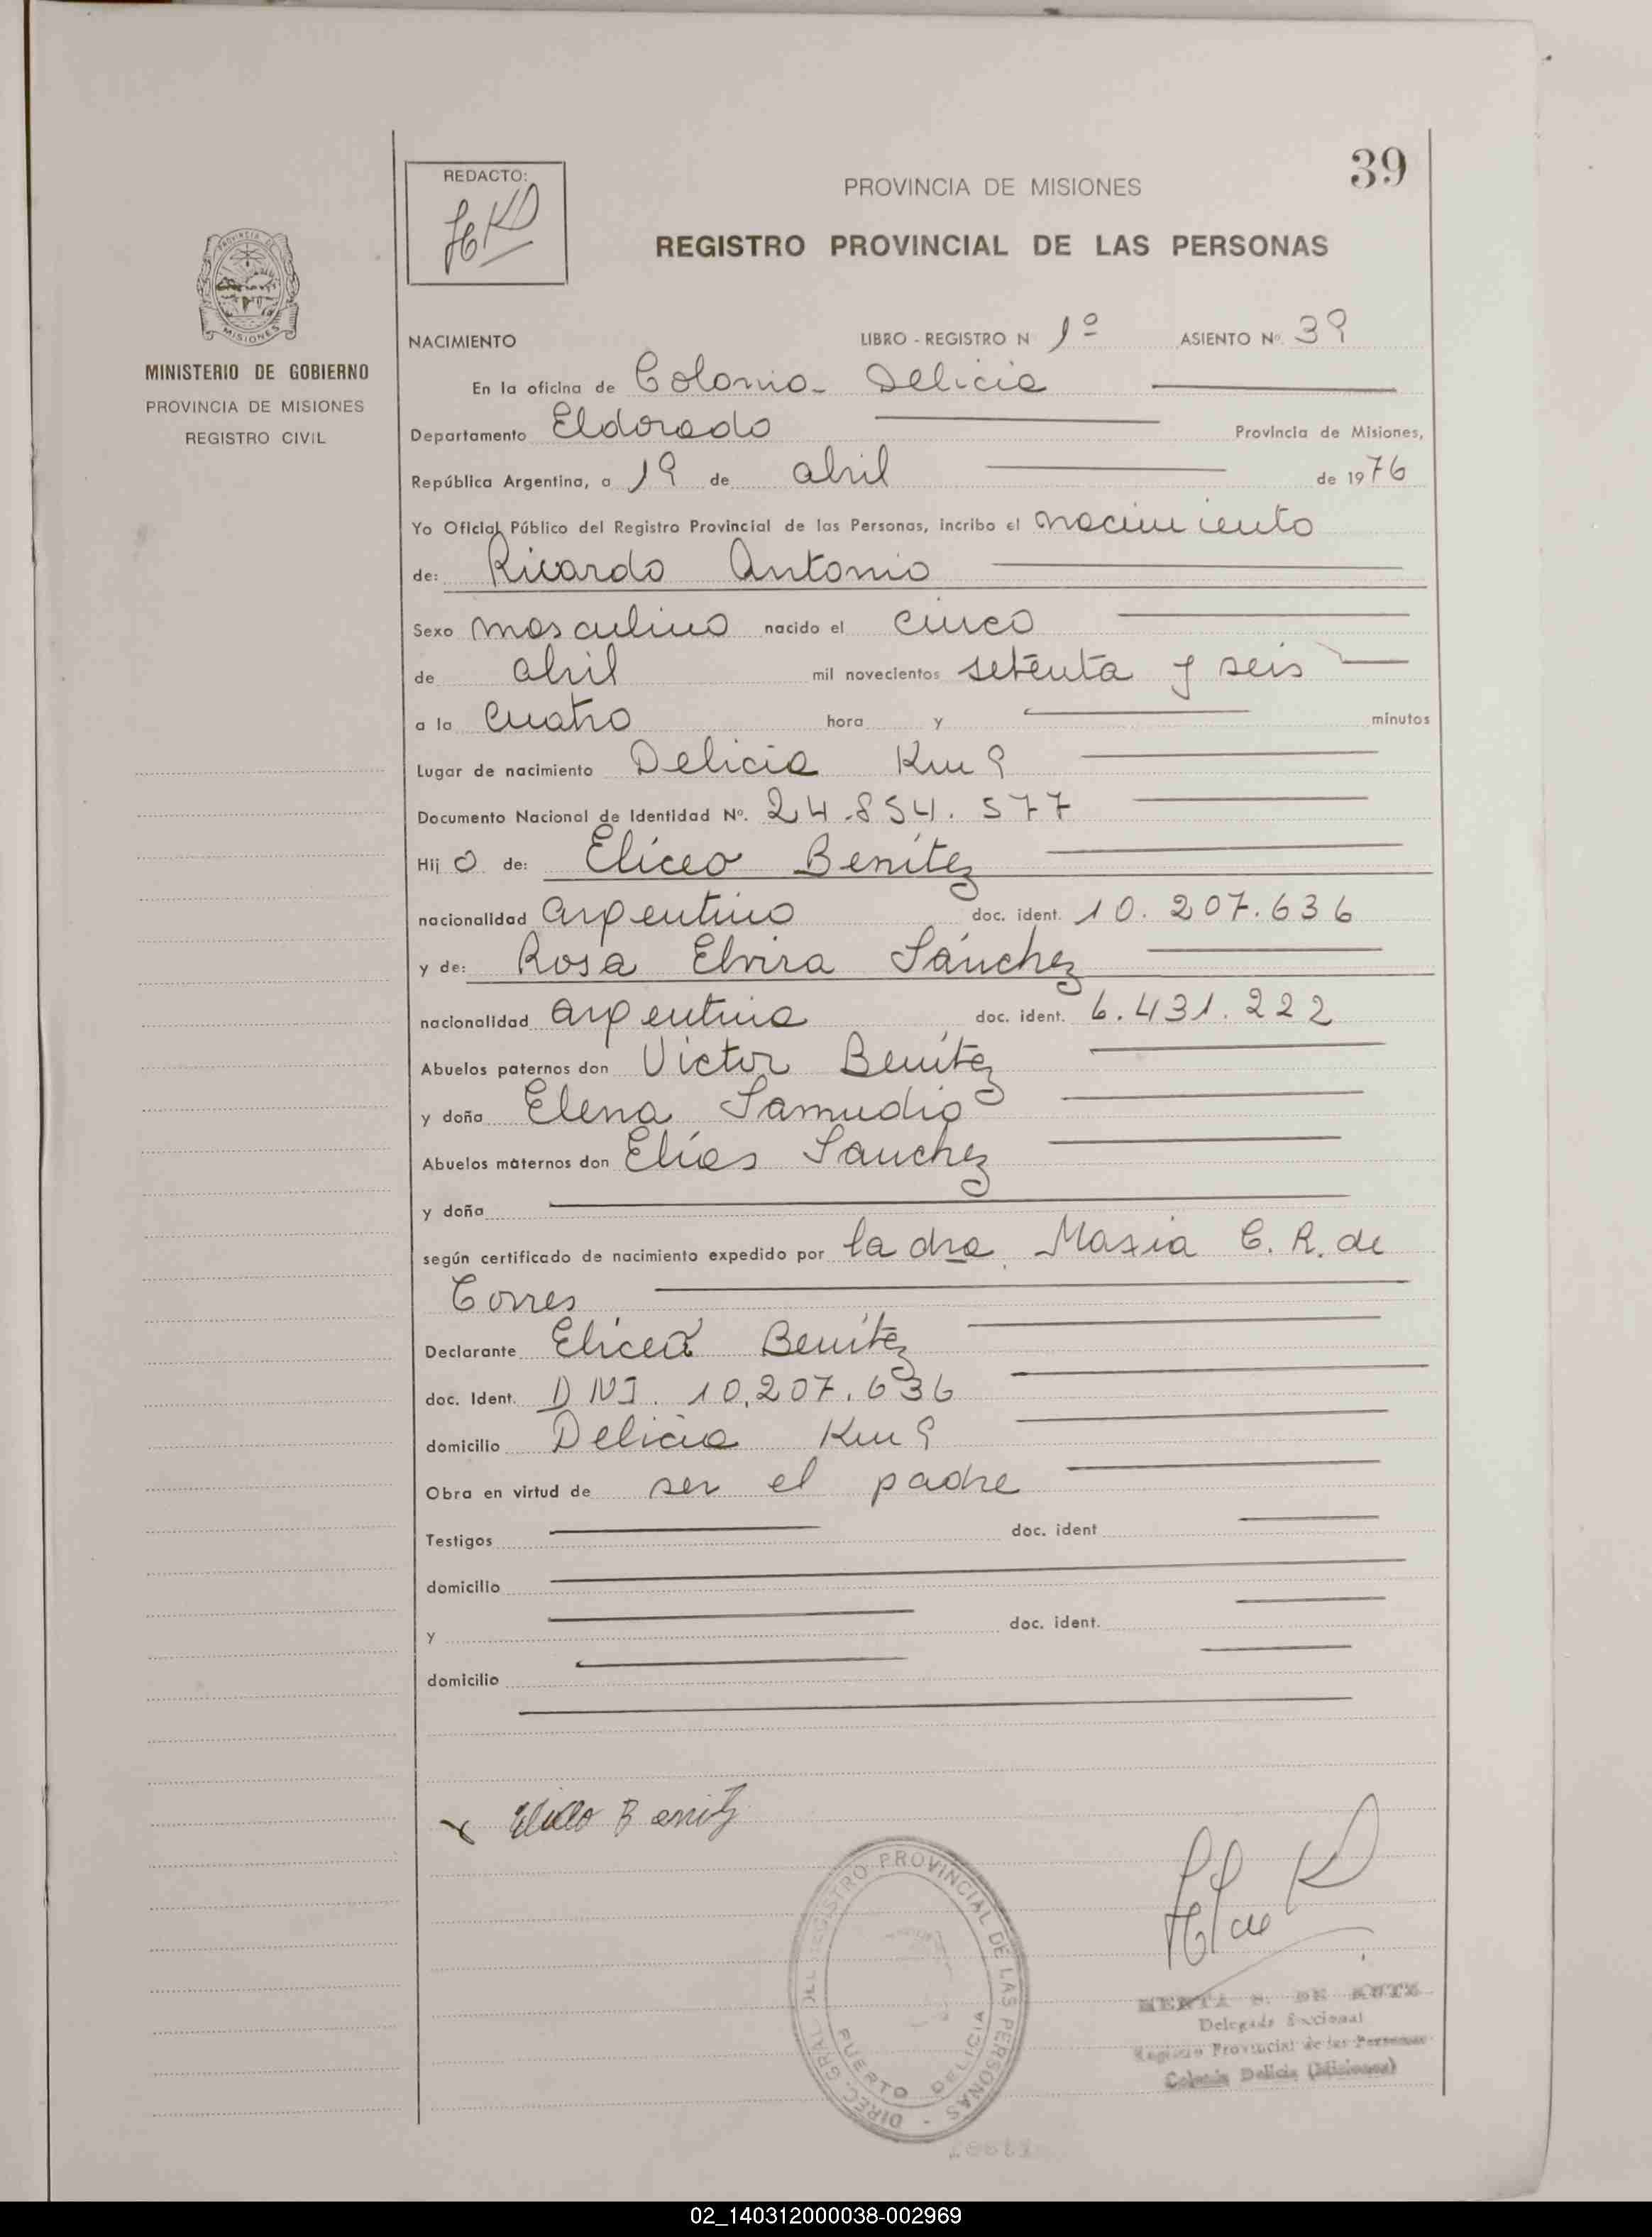 39
REDACTO:
PROVINCIA DE MISIONES
REGISTRO PROVINCIAL DE LAS PERSONAS
PROVINCIA DE
MISIONES
MINISTERIO DE GOBIERNO
PROVINCIA DE MISIONES
REGISTRO CIVIL
NACIMIENTO LIBRO - REGISTRO N 1º ASIENTO Nº. 39
En la oficina de Colonia Delicia
Departamento Eldorado Provincia de Misiones,
República Argentina, a 19 de abril de 1976
Yo Oficial Público del Registro Provincial de las Personas, incribo el nacimiento
de: Ricardo Antonio
Sexo masculino nacido el cinco
de abril mil novecientos setenta y seis
a la cuatro hora y minutos
Lugar de nacimiento Delicia Km 9
Documento Nacional de Identidad Nº. 24.854.577
Hij o de: Elíceo Benítez
nacionalidad argentino doc. ident. 10.207.636
y de: Rosa Elvira Sánchez
nacionalidad argentina doc. ident. 6.431.222
Abuelos paternos don Victor Benítez
y doña Elena Samudio
Abuelos maternos don Elías Sanchez
y doña
según certificado de nacimiento expedido por la dra María C. R. de
Torres
Declarante Benítez
doc. Ident. DNI. 10,207.636
domicilio Delicia Km 9
Obra en virtud de ser el padre
Testigos doc. ident
domicilio
y doc. ident.
domicilio
Eliceo Benitz
DIREC. GRAL. DEL REGISTRO PROVINCIAL DE LAS PERSONAS -
PUERTO DELICIA
DE
Delegada Seccional
Registro Provincial de las Personas
Colonia Delicia (Misiones)
02_140312000038-002969